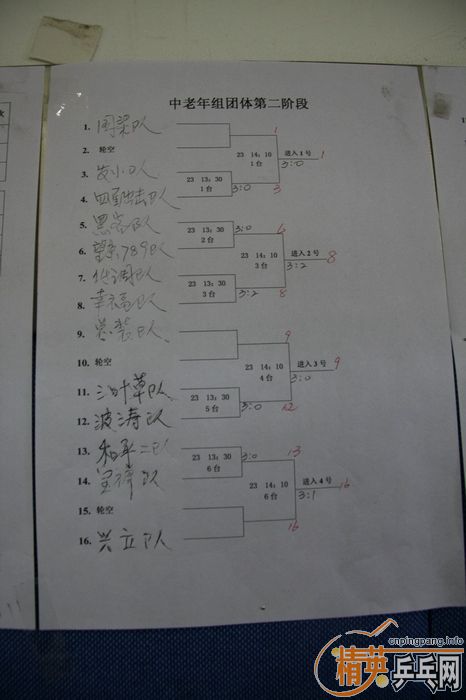 中老年组团体第二阶段
1. 国梁队
2. 轮空
3. 发小队
4. 四面出击队
5. 黑客队
6. 望京789队
7. 低调队
8. 幸福队
9. 总装队
10. 轮空
11. 三叶草队
12. 波涛队
13. 和平二队
14. 队
15. 轮空
16. 兴立队
23 14:10
1台
1
3
进入1号
3:0
1
23 13:30
1台
3:0
23 13:30
2台
3:0
6
23 14:10
3台
8
进入2号
3:2
8
23 13:30
3台
3:2
9
23 14:10
4台
12
进入3号
3:0
9
23 13:30
5台
3:0
23 13:30
6台
3:0
13
23 14:10
6台
16
进入4号
3:1
16
cnpingpang.info
精英乒乓网